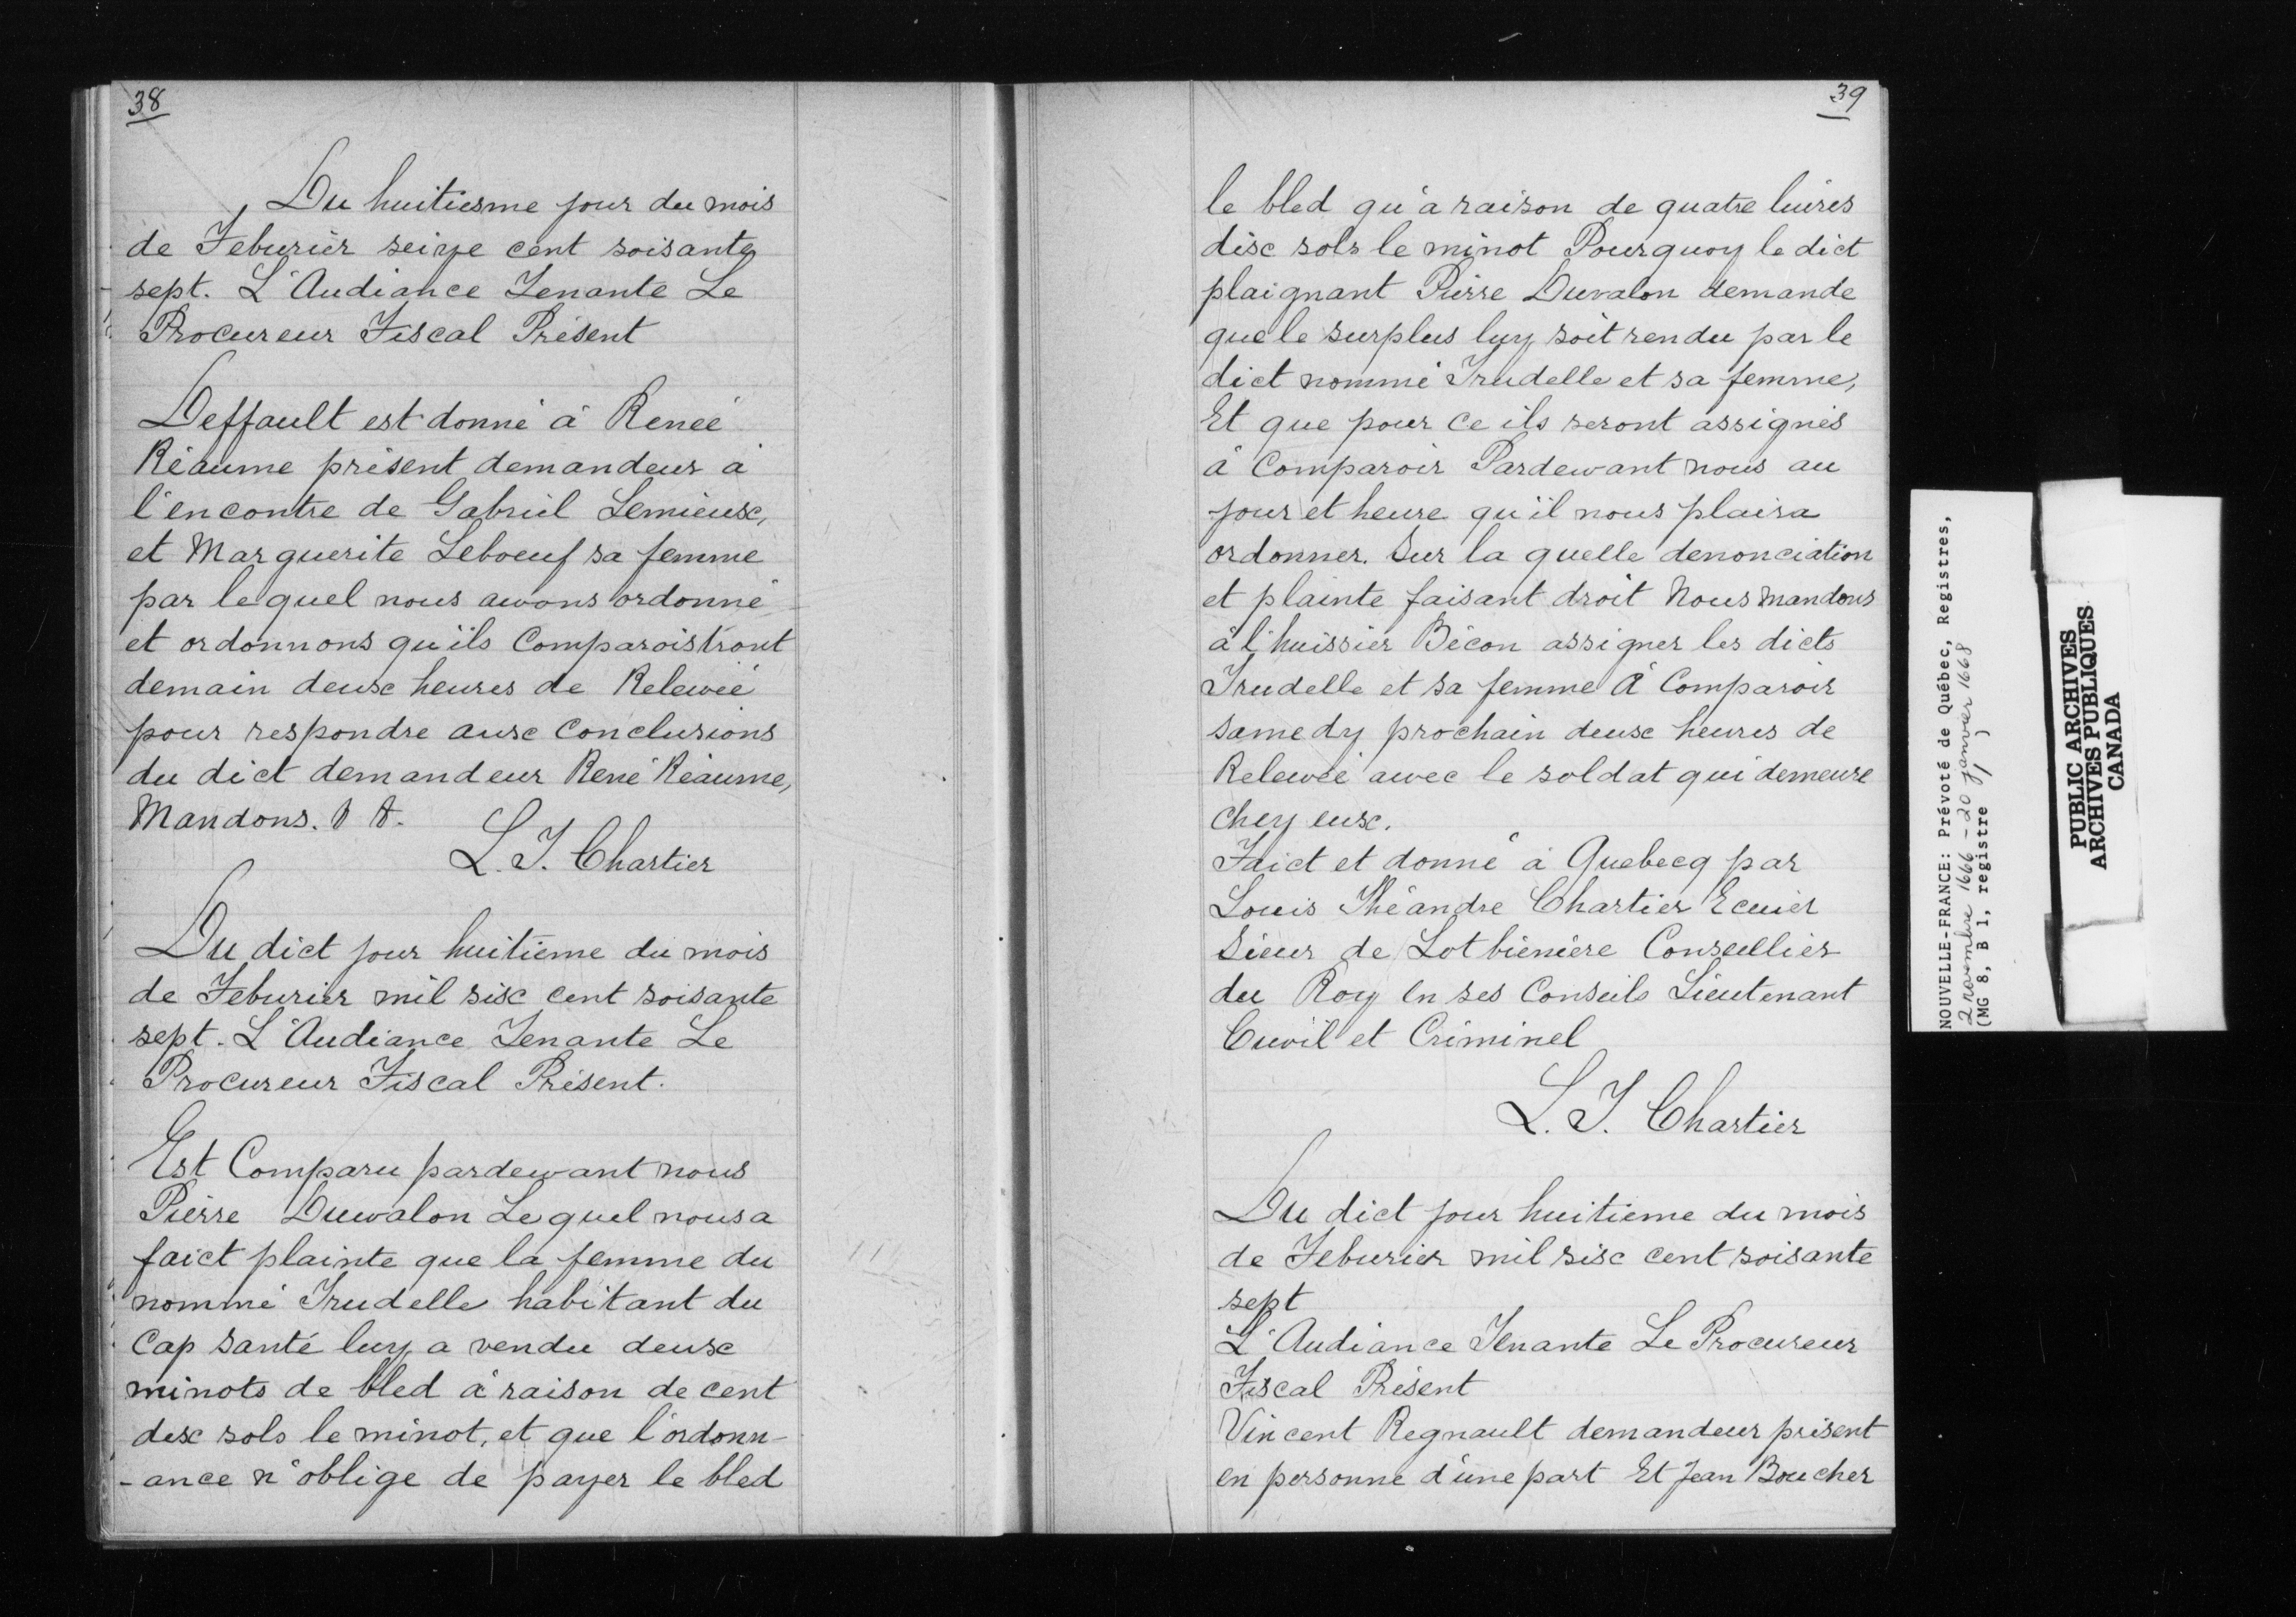 38
Du huitiesme jour du mois
de Feburier seize cent soisante
sept. L'Audiance Tenante Le
Procureur Fiscal Présent
Deffault est donné à Reneé
Réaume présent demandeur à
l'encontre de Gabriel Lemieux,
et Marguerite Leboeuf sa femme
par lequel nous awons ordonné
et ordonnons qu'ils Comparoistront
demain deux heures de Relewée
pour respondre aux Conclusions
du dict demandeur René Réaume,
Mandons.
L. T. Chartier
Du dict jour huitième du mois
de Feburier mil six cent soisante
sept. L'Audiance Tenante Le
Procureur Fiscal Présent.
Est Comparu pardewant nous
Pierre Duwalon Lequel nous a
faict plainte que la femme du
nommé Trudelle habitant du
Cap santé luy a vendu deux
minots de bled à raison de cent
dix sols le minot, et que l'ordonn-
-ance n'oblige de payer le bled
39
le bled qu'a raison de quatre liures
dix sols le minot Pourquoy le dict
plaignant Pierre Duvalon demande
que le surplus luy soit rendu par le
dict nommé Trudelle et sa femme,
Et que pour ce ils seront assignés
à Comparoir Pardewant nous au
jour et heure qu'il nous plaira
ordonner. Sur la quelle denonciation
et plainte faisant droit Nous mandons
à l'huissier Bécon assigner les dicts
Trudelle et sa femme A Comparoir
samedy prochain deux heures de
Relewée awec le soldat qui demeure
chez eux.
Faict et donné à Quebecq par
Louis Théandre Chartier Ecuier
Sieur de Lotbienière Conseillier
du Roy en ses Conseils Lieutenant
Ciuil et Criminel
L. T. Chartier
Du dict jour huitieme du mois
de Feburier mil six cent soisante
sept
L'Audiance Tenante Le Procureur
Fiscal Présent
Vincent Regnault demandeur présent
en personne d'une part Et Jean Boucher
NOUVELLE-FRANCE: Prévoté de Québec, Registres,
2 novembre 1666 - 20 janvier 1668
(MG 8, B 1, registre 1)
PUBLIC ARCHIVES
ARCHIVES PUBLIQUES
CANADA